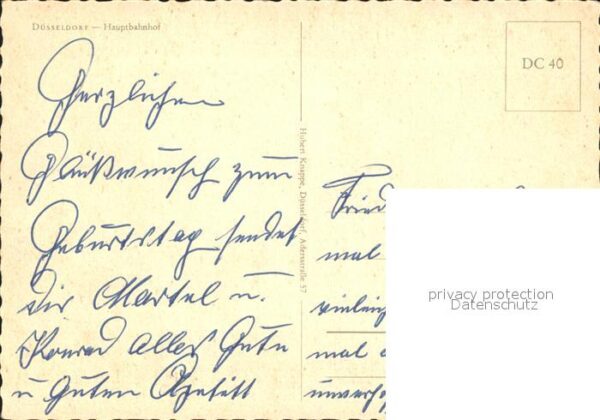 DÜSSELDORF — Hauptbahnhof
DC 40
Herzlichen
Glückwunsch zum
Geburtstag sendet
dir Martel u.
Konrad alles Gute
u guten Apetitt
Hubert Knappe, Düsseldorf, Adersstraße 57
Fried
mal
mal
unverho
privacy protection
Datenschutz